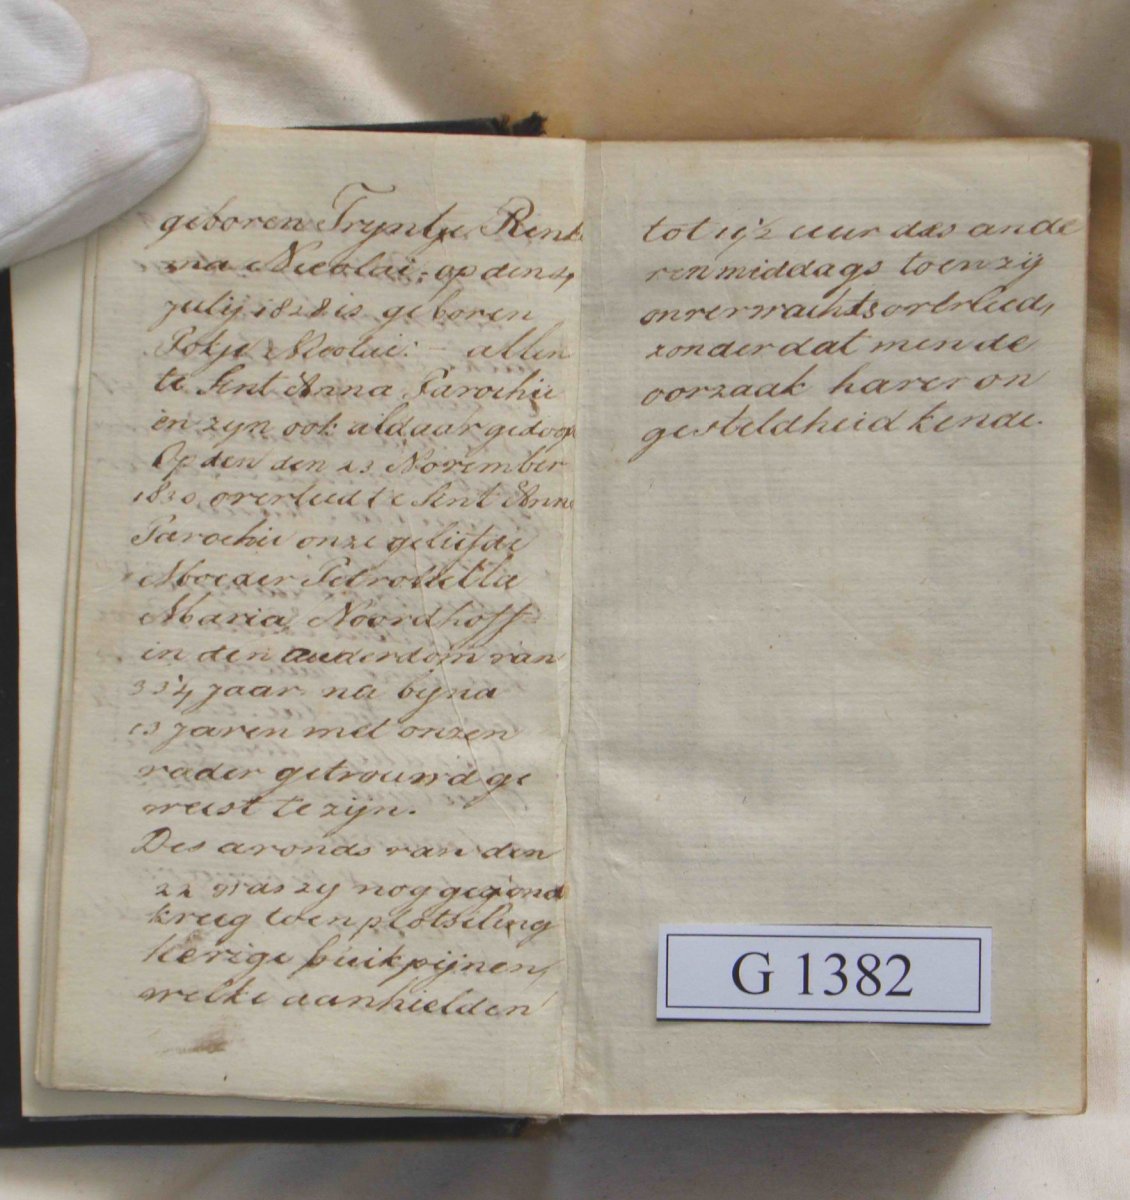 geboren Tryntje Renk
ma Nicolai; op den 4
July 1828 is geboren
Pokje Nicolai: – allen
te Sent Anna Parochie
en zyn ook aldaar gedoop
Op den den 23 November
1830 overleed te Sent Anne
Parochie onze geliefde
Moeder Petronella
Maria Noordhoff
in den ouderdom van
33¼ jaar na byna
13 jaren met onzen
vader getrouwd ge
weest te zijn.
Des avonds van den
22 was zy nog gezond
kreeg toen plotseling
hevige buikpijnen,
welke aanhielden
tot ½ uur des ande
ren middags toen zij
onverwachts overleed,
zonder dat men de
oorzaak harer on
gesteldheid kende.
G 1382